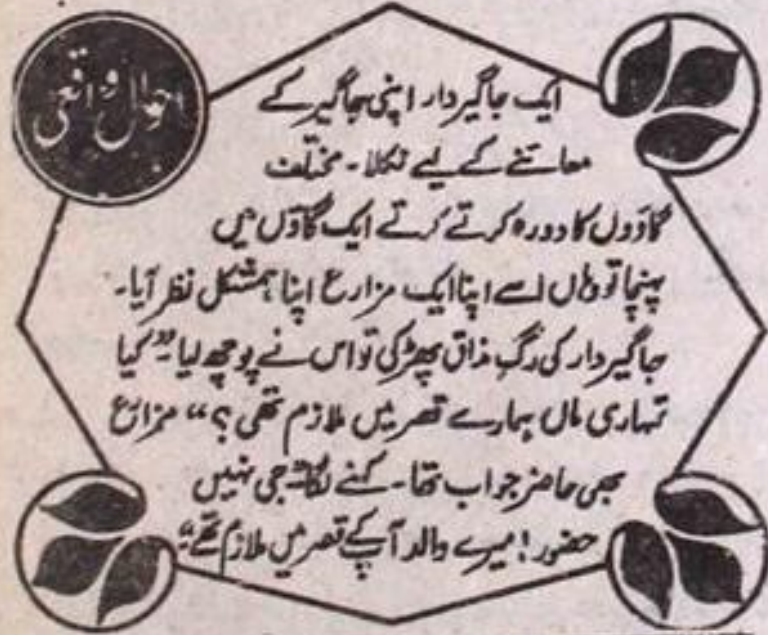 احوال واقعی
ایک جاگیردار اپنی جاگیر کے
معائنے کے لیے نکلا۔ مختلف
گاؤوں کا دورہ کرتے کرتے ایک گاؤں میں
پہنچا تو وہاں اسے اپنا ایک مزارع اپنا ہمشکل نظر آیا۔
جاگیردار کی رگِ مذاق پھڑکی تو اس نے پوچھ لیا ”کیا
تمہاری ماں ہمارے قصر میں ملازم تھی؟“ مزارع
بھی حاضر جواب تھا۔ کہنے لگا ”جی نہیں
حضور! میرے والد آپ کے قصر میں ملازم تھے“